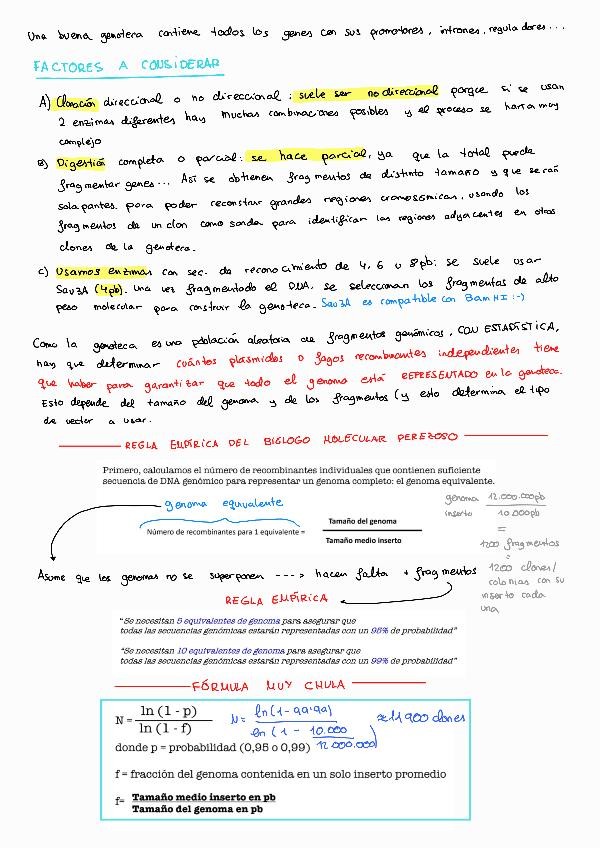 Una buena genoteca contiene todos los genes con sus promotores, intrones, reguladores...
FACTORES A CONSIDERAR
A) Clonación direccional o no direccional: suele ser no direccional porque si se usan
2 enzimas diferentes hay muchas combinaciones posibles y el proceso se haría muy
complejo
B) Digestión completa o parcial: se hace parcial, ya que la total puede
fragmentar genes... Así se obtienen fragmentos de distinto tamaño y que serán
solapantes para poder reconstruir grandes regiones cromosómicas, usando los
fragmentos de un clon como sonda para identificar las regiones adyacentes en otros
clones de la genoteca.
C) Usamos enzimas con sec. de reconocimiento de 4, 6 u 8pb: se suele usar
Sau3A (4pb). Una vez fragmentado el DNA, se seleccionan los fragmentos de alto
peso molecular para construir la genoteca. Sau3A es compatible con BamHI :-)
Como la genoteca es una población aleatoria de fragmentos genómicos, CON ESTADÍSTICA,
hay que determinar cuántos plásmidos o fagos recombinantes independientes tiene
que haber para garantizar que todo el genoma está REPRESENTADO en la genoteca.
Esto depende del tamaño del genoma y de los fragmentos (y esto determina el tipo
de vector a usar.
REGLA EMPÍRICA DEL BIÓLOGO MOLECULAR PEREZOSO
Primero, calculamos el número de recombinantes individuales que contienen suficiente
secuencia de DNA genómico para representar un genoma completo: el genoma equivalente.
genoma equivalente
Número de recombinantes para 1 equivalente =
Tamaño del genoma
Tamaño medio inserto
genoma 12.000.000pb
inserto 10.000pb
=
1200 fragmentos
=
1200 clones/
colonias con su
inserto cada
una
Asume que los genomas no se superponen ---> hacen falta + fragmentos
REGLA EMPÍRICA
"Se necesitan 5 equivalentes de genoma para asegurar que
todas las secuencias genómicas estarán representadas con un 95% de probabilidad"
"Se necesitan 10 equivalentes de genoma para asegurar que
todas las secuencias genómicas estarán representadas con un 99% de probabilidad"
FÓRMULA MUY CHULA
N = ln (1 - p)
ln (1 - f)
N = ln (1 - 99'99)
ln (1 - 10.000
12.000.000)
≈ 11900 clones
donde p = probabilidad (0,95 o 0,99)
f = fracción del genoma contenida en un solo inserto promedio
f= Tamaño medio inserto en pb
Tamaño del genoma en pb